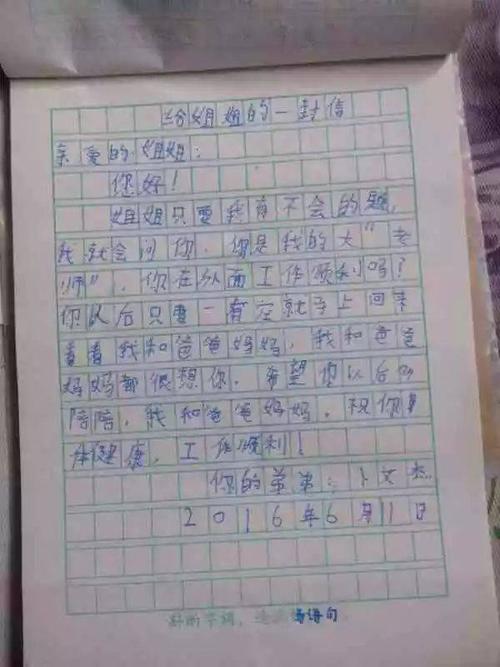 给姐姐的一封信
亲爱的姐姐:
你好!
姐姐只要我有不会的题,
我就会问你.你是我的大"老
师".你在外面工作顺利吗?
你以后只要一有空就马上回来
看看我和爸爸妈妈,我和爸爸
妈妈都很想你.希望你以后
陪陪,我和爸爸妈妈.祝你身
体健康,工作顺利!
你的弟弟:卜文杰
2016年6月1日
好的字词,
语句